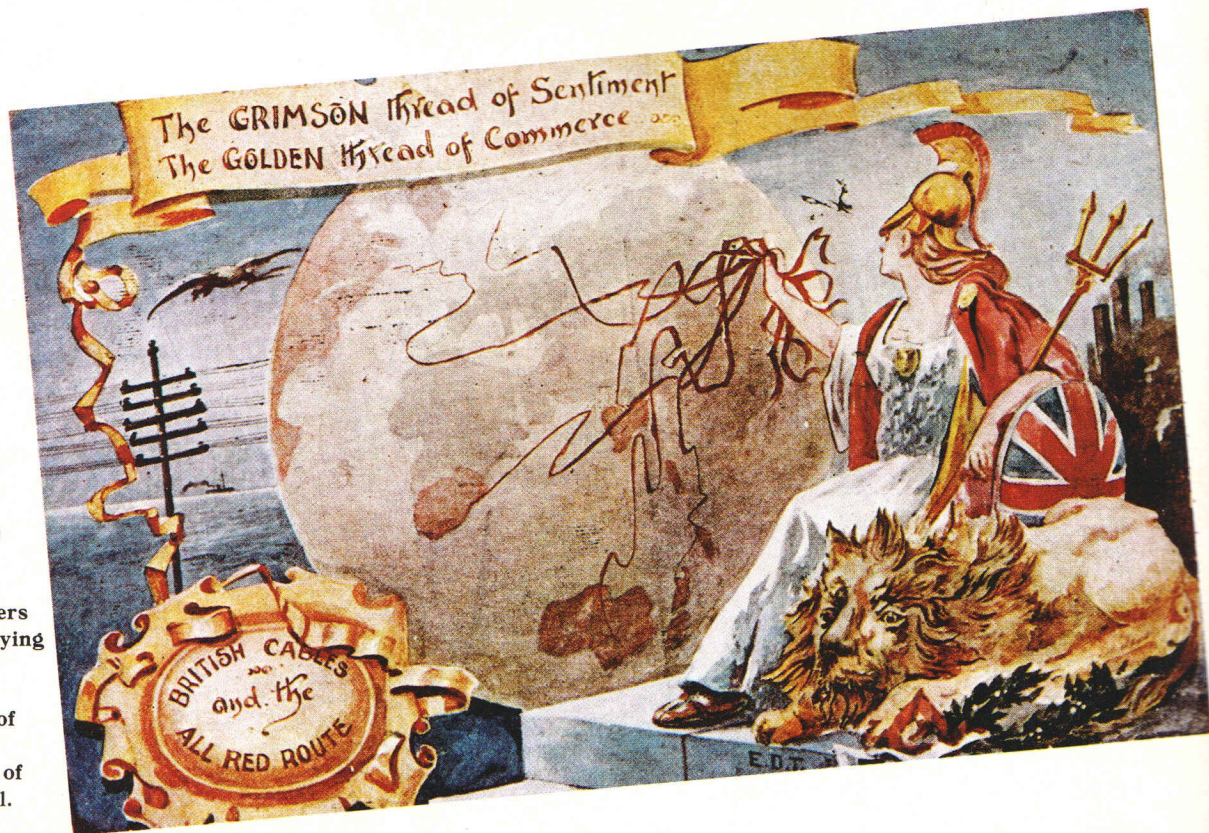 The CRIMSON thread of Sentiment
The GOLDEN thread of Commerce
BRITISH CABLES
and. the
ALL RED ROUTE
E.D.T.
ers
ying
of
of
l.